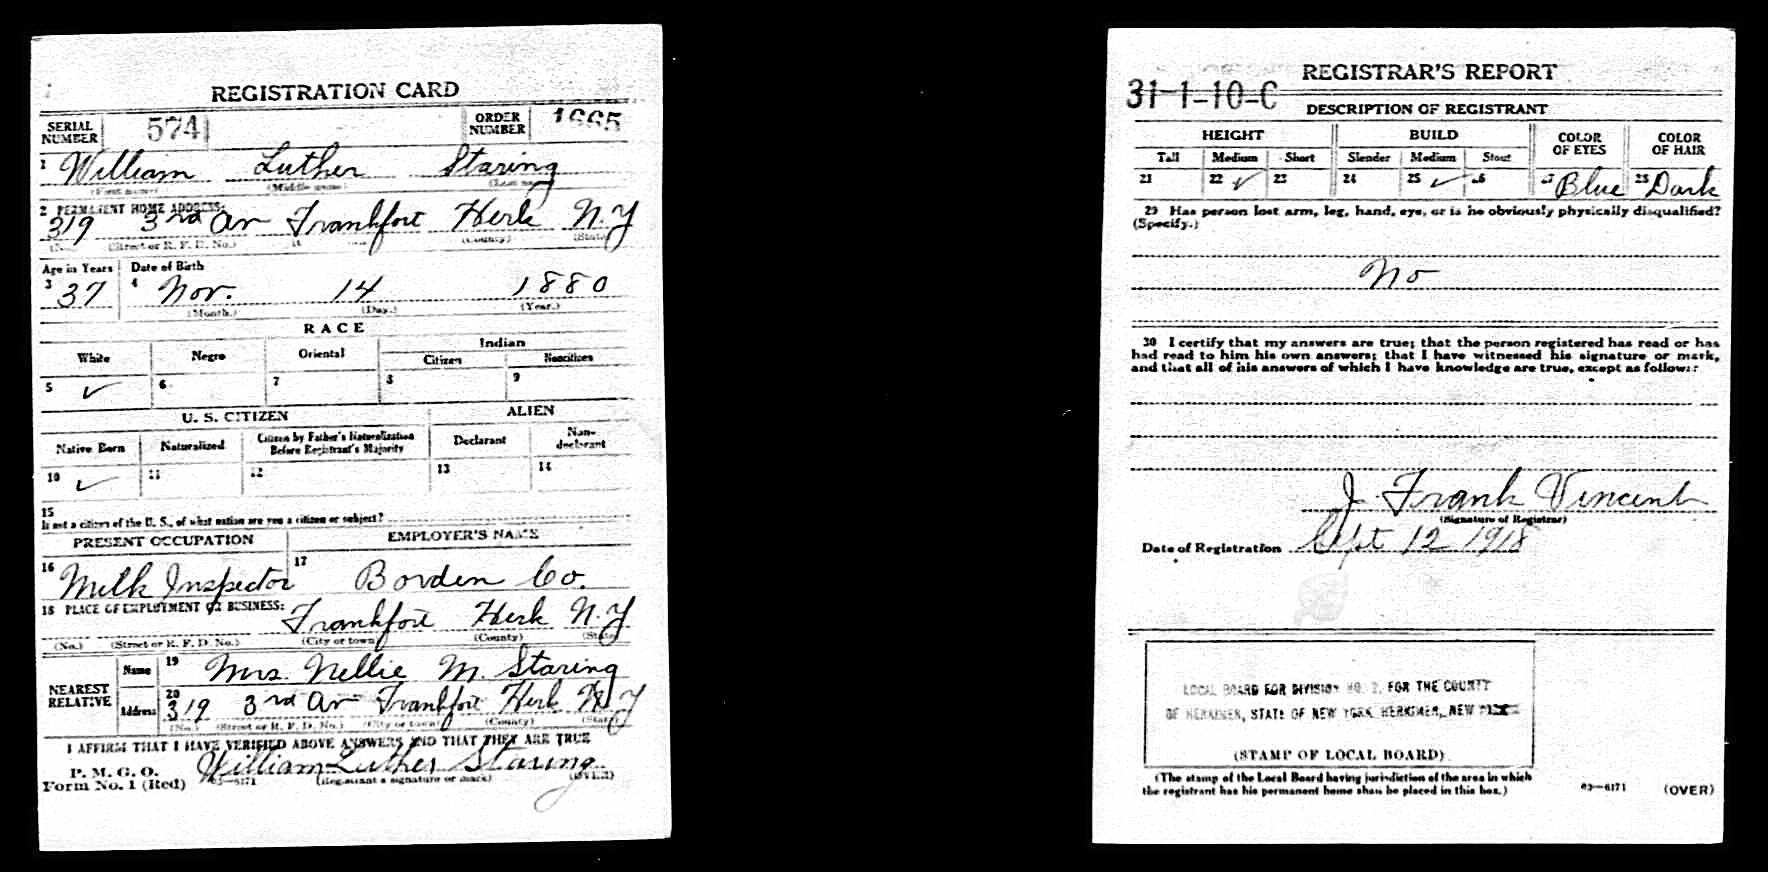 REGISTRATION CARD
SERIAL NUMBER 574 ORDER NUMBER 1665
1 William Luther Staring
(First name) (Middle name) (Last name)
2 PERMANENT HOME ADDRESS:
319 3rd Av Frankfort Herk N.Y
(No.) (Street or R. F. D. No.) (County) (State)
Age in Years Date of Birth
3 37 4 Nov. 14 1880
(Month.) (Day.) (Year.)
RACE
White Negro Oriental Indian
Citizen Noncitizen
5 ✓ 6 7 8 9
U. S. CITIZEN ALIEN
Native Born Naturalized Citizen by Father's Naturalization Before Registrant's Majority Declarant Non-declarant
10 ✓ 11 12 13 14
15
If not a citizen of the U. S., of what nation are you a citizen or subject?
PRESENT OCCUPATION EMPLOYER'S NAME
16 Milk Inspector 17 Borden Co.
18 PLACE OF EMPLOYMENT OR BUSINESS:
Frankfort Herk N.Y
(No.) (Street or R. F. D. No.) (City or town) (County) (State)
NEAREST RELATIVE Name 19 Mrs. Nellie M. Staring
Address 20 319 3rd Av Frankfort Herk N Y
(No.) (Street or R. F. D. No.) (City or town) (County) (State)
I AFFIRM THAT I HAVE VERIFIED ABOVE ANSWERS AND THAT THEY ARE TRUE
P. M. G. O.
Form No. 1 (Red) William Luther Staring
03—6171 (Registrant's signature or mark) (OVER)
REGISTRAR'S REPORT
31-1-10-C
DESCRIPTION OF REGISTRANT
HEIGHT BUILD COLOR OF EYES COLOR OF HAIR
Tall Medium Short Slender Medium Stout
21 22 ✓ 23 24 25 ✓ 26 27 Blue 28 Dark
29 Has person lost arm, leg, hand, eye, or is he obviously physically disqualified?
(Specify.)
No
30 I certify that my answers are true; that the person registered has read or has
had read to him his own answers; that I have witnessed his signature or mark,
and that all of his answers of which I have knowledge are true, except as follows:
J. Frank Vincent
(Signature of Registrar)
Date of Registration Sept 12 1918
LOCAL BOARD FOR DIVISION NO. 2, FOR THE COUNTY
OF HERKIMER, STATE OF NEW YORK HERKIMER, NEW YORK
(STAMP OF LOCAL BOARD)
(The stamp of the Local Board having jurisdiction of the area in which
the registrant has his permanent home shall be placed in this box.)
03—6171 (OVER)